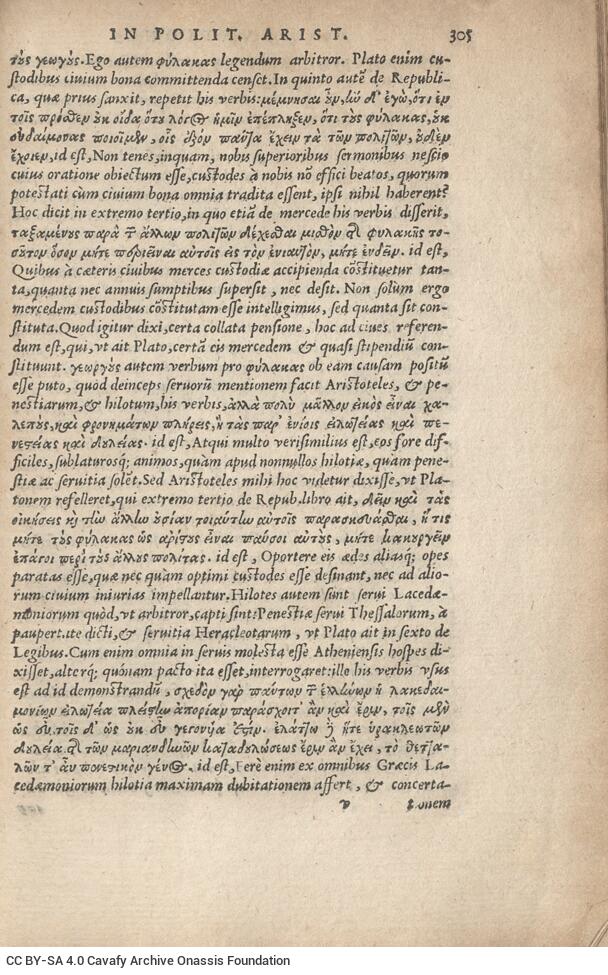 IN POLIT. ARIST. 305
τὰς γεωγὰς. Ego autem φύλακας legendum arbitror. Plato enim cu-
stodibus ciuium bona committenda censet. In quinto autē de Republi-
ca, quæ prius sanxit, repetit his verbis: μέμνησαι οὖν, ἦν δ' ἐγὼ, ὅτι ἐν
τοῖς πρόσθεν οὐκ οἶδα ὅτου λόγος ἡμῖν ἐπέπληξεν, ὅτι τοὺς φύλακας, οὐκ
εὐδαίμονας ποιοῖμεν, οἷς ἐξὸν πάντα ἔχειν τὰ τῶν πολιτῶν, οὐδὲν
ἔχοιεν, id est, Non tenes, inquam, nobis superioribus sermonibus nescio
cuius oratione obiectum esse, custodes à nobis nō effici beatos, quorum
potestati cùm ciuium bona omnia tradita essent, ipsi nihil haberent?
Hoc dicit in extremo tertio, in quo etiā de mercede his verbis disserit,
ταξαμένους παρὰ τῶν ἄλλων πολιτῶν δέχεσθαι μισθὸν τῆς φυλακῆς το-
σοῦτον ὅσον μήτε περιεῖναι αὐτοῖς εἰς τὸν ἐνιαυτὸν, μήτε ἐνδεῖν. id est,
Quibus à cæteris ciuibus merces custodiæ accipienda cōstituetur tan-
ta, quanta nec annuis sumptibus supersit, nec desit. Non solùm ergo
mercedem custodibus cōstitutam esse intelligimus, sed quanta sit con-
stituta. Quod igitur dixi, certa collata pensione, hoc ad ciues referen-
dum est, qui, vt ait Plato, certā eis mercedem & quasi stipendiū con-
stituunt. γεωργὸς autem verbum pro φύλακας ob eam causam positū
esse puto, quòd deinceps seruorū mentionem facit Aristoteles, & pe-
nestiarum, & hilotum, his verbis, ἀλλὰ πολὺ μᾶλλον εἰκὸς εἶναι χα-
λεποὺς, καὶ φρονημάτων πλήρεις, ἢ τὰς παρ' ἐνίοις εἱλωτείας καὶ πε-
νεστείας καὶ δουλείας. id est, Atqui multo verisimilius est, eos fore dif-
ficiles, sublaturosq; animos, quàm apud nonnullos hilotiæ, quàm pene-
stiæ ac seruitia solēt. Sed Aristoteles mihi hoc videtur dixisse, vt Pla-
tonem refelleret, qui extremo tertio de Repub. libro ait, δεῖν καὶ τὰς
οἰκήσεις καὶ τὴν ἄλλην οὐσίαν τοιαύτην αὐτοῖς παρασκευάσθαι, ἥτις
μήτε τοὺς φύλακας ὡς ἀρίστους εἶναι παύσοι αὐτοὺς, μήτε κακουργεῖν
ἐπάροι περὶ τοὺς ἄλλους πολίτας. id est, Oportere eis ædes aliasq; opes
paratas esse, quæ nec quàm optimi custodes esse desinant, nec ad alio-
rum ciuium iniurias impellantur. Hilotes autem sunt serui Lacedæ-
moniorum quòd, vt arbitror, capti sint: Penestiæ serui Thessalorum, à
paupertate dicti, & seruitia Heracleotarum, vt Plato ait in sexto de
Legibus. Cum enim omnia in seruis molesta esse Atheniensis hospes di-
xisset, alterq; quónam pacto ita esset, interrogaret: ille his verbis vsus
est ad id demonstrandū, σχεδὸν γὰρ πάντων τῶν ἑλλήνων ἡ λακεδαι-
μονίων εἱλωτεία πλείστην ἀπορίαν παράσχοιτ' ἂν καὶ ἔριν, τοῖς μὲν
ὡς εὖ, τοῖς δ' ὡς οὐκ εὖ γεγονυῖα ἐστίν. ἐλάττω δὲ ἥτε ἡρακλεωτῶν
δουλεία τῆς τῶν μαριανδυνῶν καταδουλώσεως ἔριν ἂν ἔχει, τὸ θετλα-
λῶν τ' αὖ πενεστικὸν γένος. id est, Ferè enim ex omnibus Græcis La-
cedæmoniorum hilotia maximam dubitationem affert, & concerta-
v tionem
CC BY-SA 4.0 Cavafy Archive Onassis Foundation